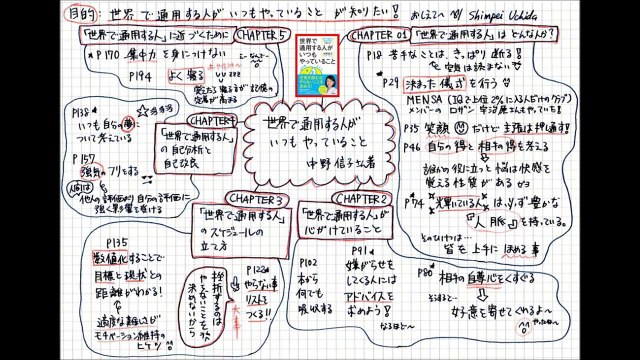 目的: 世界で通用する人がいつもやっていることが知りたい! おしえて Shimpei Uchida
CHAPTER 5
「世界で通用する人」に近づくために
P170 集中力を身につけない
P194 よく寝る
覚えたら寝るまでが記憶の
定着が高まる
世界で通用する人が
いつも
やっていること
CHAPTER 01
「世界で通用する人」はどんな人か?
P18 苦手なことは、きっぱり断る!
空気は読まない
P29 決まった儀式を行う
MENSA (IQで上位2%に入る人だけのグループ)
メンバーの ロザン 宇治原さんもやってる!
P35 笑顔だけど主張は押し通す!
P46 自分の得と相手の得も考える
誰かの役に立つと脳は快感を
覚える性質がある
P74 光輝いている人は、必ず豊かな
「人脈」を持っている。
そのひけつは…
皆を上手にほめる事
P80 相手の自尊心をくすぐる
そうすると…
好意を寄せてくれるよ〜
世界で通用する人が
いつもやっていること
中野信子著
CHAPTER 4
「世界で通用する人」
の自分分析と
自己改良
P138
いつも自分の事
について考えている
P157
強気のフリをする
人間は
他人の評価より自分の評価に
強く影響を受ける
CHAPTER 3
「世界で通用する人」
のスケジュールの
立て方
P135
数値化することで
目標と現状との
距離がわかる!
適度な難しさが
モチベーション維持の
ヒケツ
P122
やらない事
リストを
つくる!!
大事
挫折するのは
やらないことを
決めないから
CHAPTER 2
「世界で通用する人」が
心がけていること
P102
本から
何でも
吸収する
P91
嫌がらせを
してくる人には
アドバイスを
求めよう!
なるほど〜